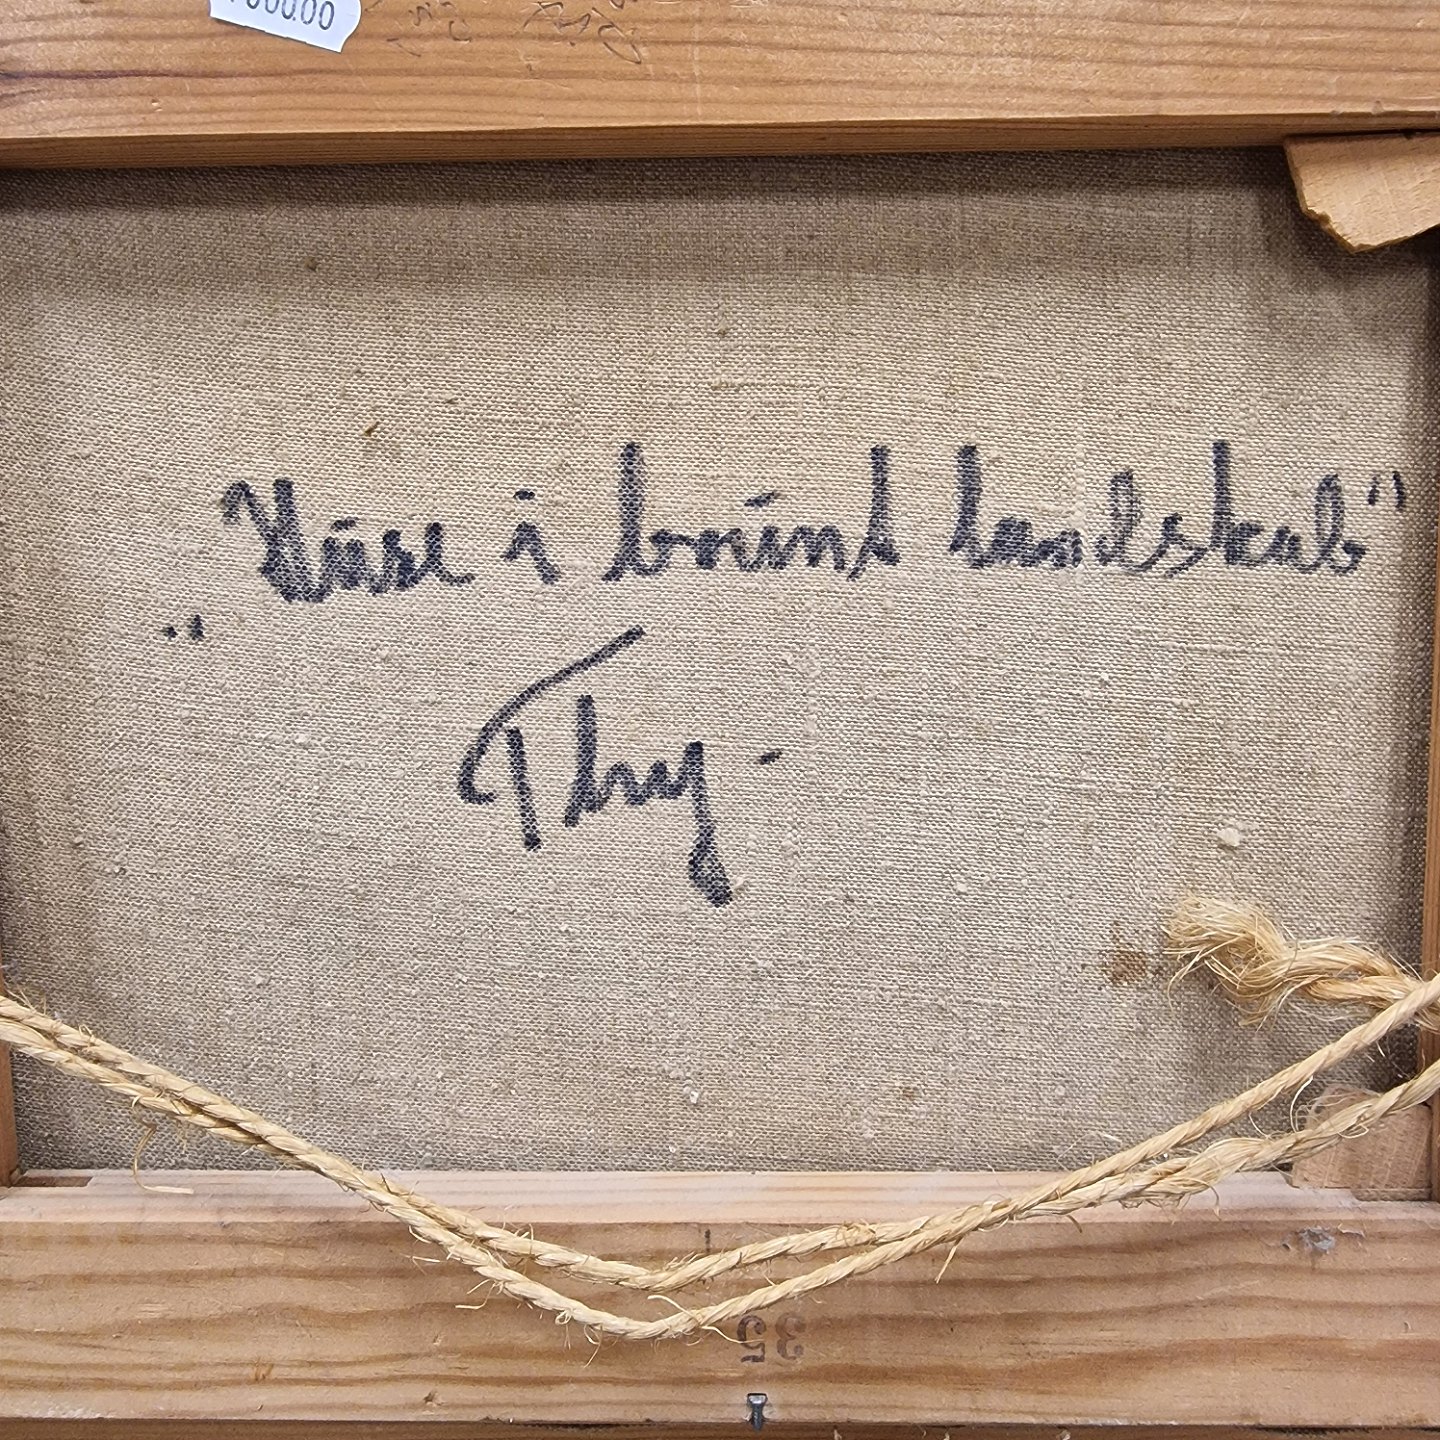 000.00
„Huse i brunt landskab"
Thy.
35